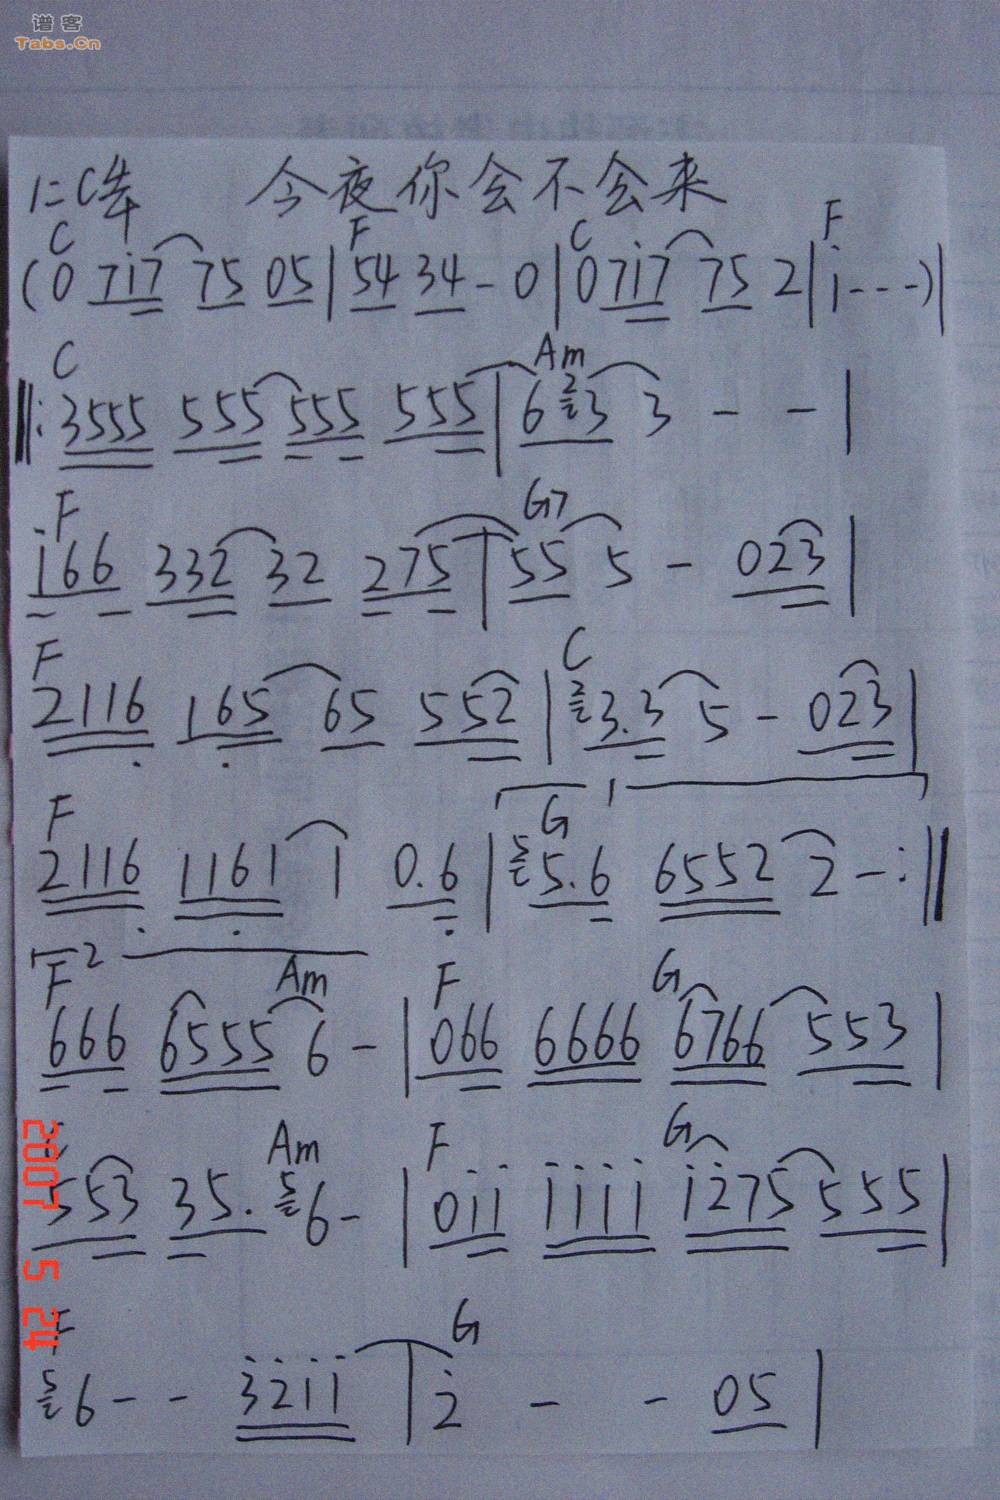 谱客
Tabs.Cn
1=C 4/4 今夜你会不会来
C F C F
(0 7i7 75 05 | 54 34 - 0 | 0 7i7 75 2 | i - - -) |
C Am
‖: 3555 555 555 555 | 6 2 3 3 - - |
F G7
i66 332 32 275 | 55 5 - 023 |
F C
2116 165 65 552 | 2 3.3 5 - 023 |
1
F G
2116 1161 1 0.6 | 5 5.6 6552 2 - :‖
2
F Am F G
666 6555 6 - | 066 6666 6766 553 |
Am F G
553 35. 5 6 - | 0ii iiii i275 555 |
F G
5 6 - - 32ii | 2 - - 05 |
2007 5 24